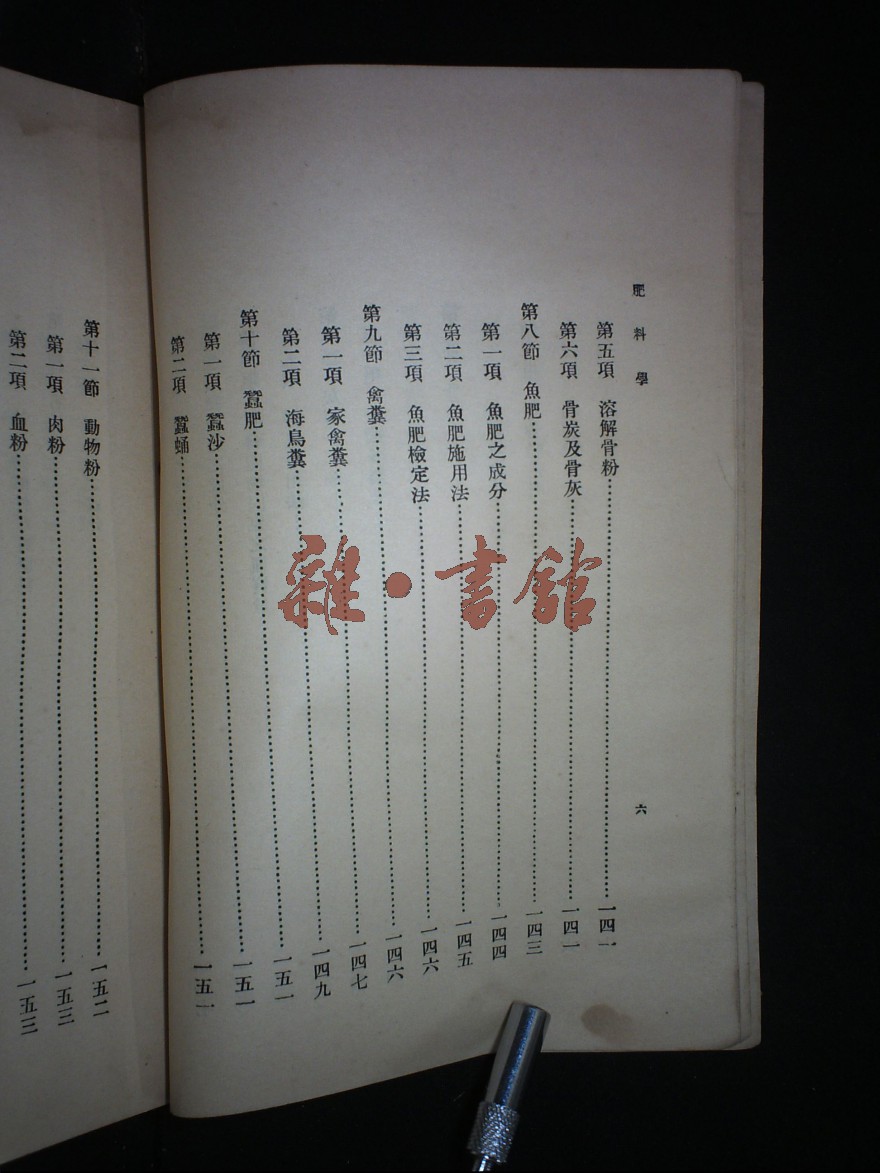 肥料學 六
第五項 溶解骨粉⋯⋯一四一
第六項 骨炭及骨灰⋯⋯一四一
第八節 魚肥⋯⋯一四三
第一項 魚肥之成分⋯⋯一四四
第二項 魚肥施用法⋯⋯一四五
第三項 魚肥檢定法⋯⋯一四六
第九節 禽糞⋯⋯一四六
第一項 家禽糞⋯⋯一四七
第二項 海鳥糞⋯⋯一四九
第十節 蠶肥⋯⋯一五一
第一項 蠶沙⋯⋯一五一
第二項 蠶蛹⋯⋯一五一
第十一節 動物粉⋯⋯一五二
第一項 肉粉⋯⋯一五三
第二項 血粉⋯⋯一五三
雜·書館